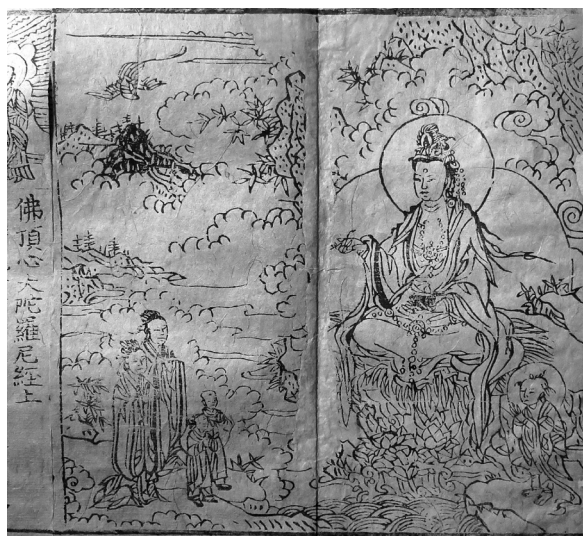 佛頂心大陀羅尼經上